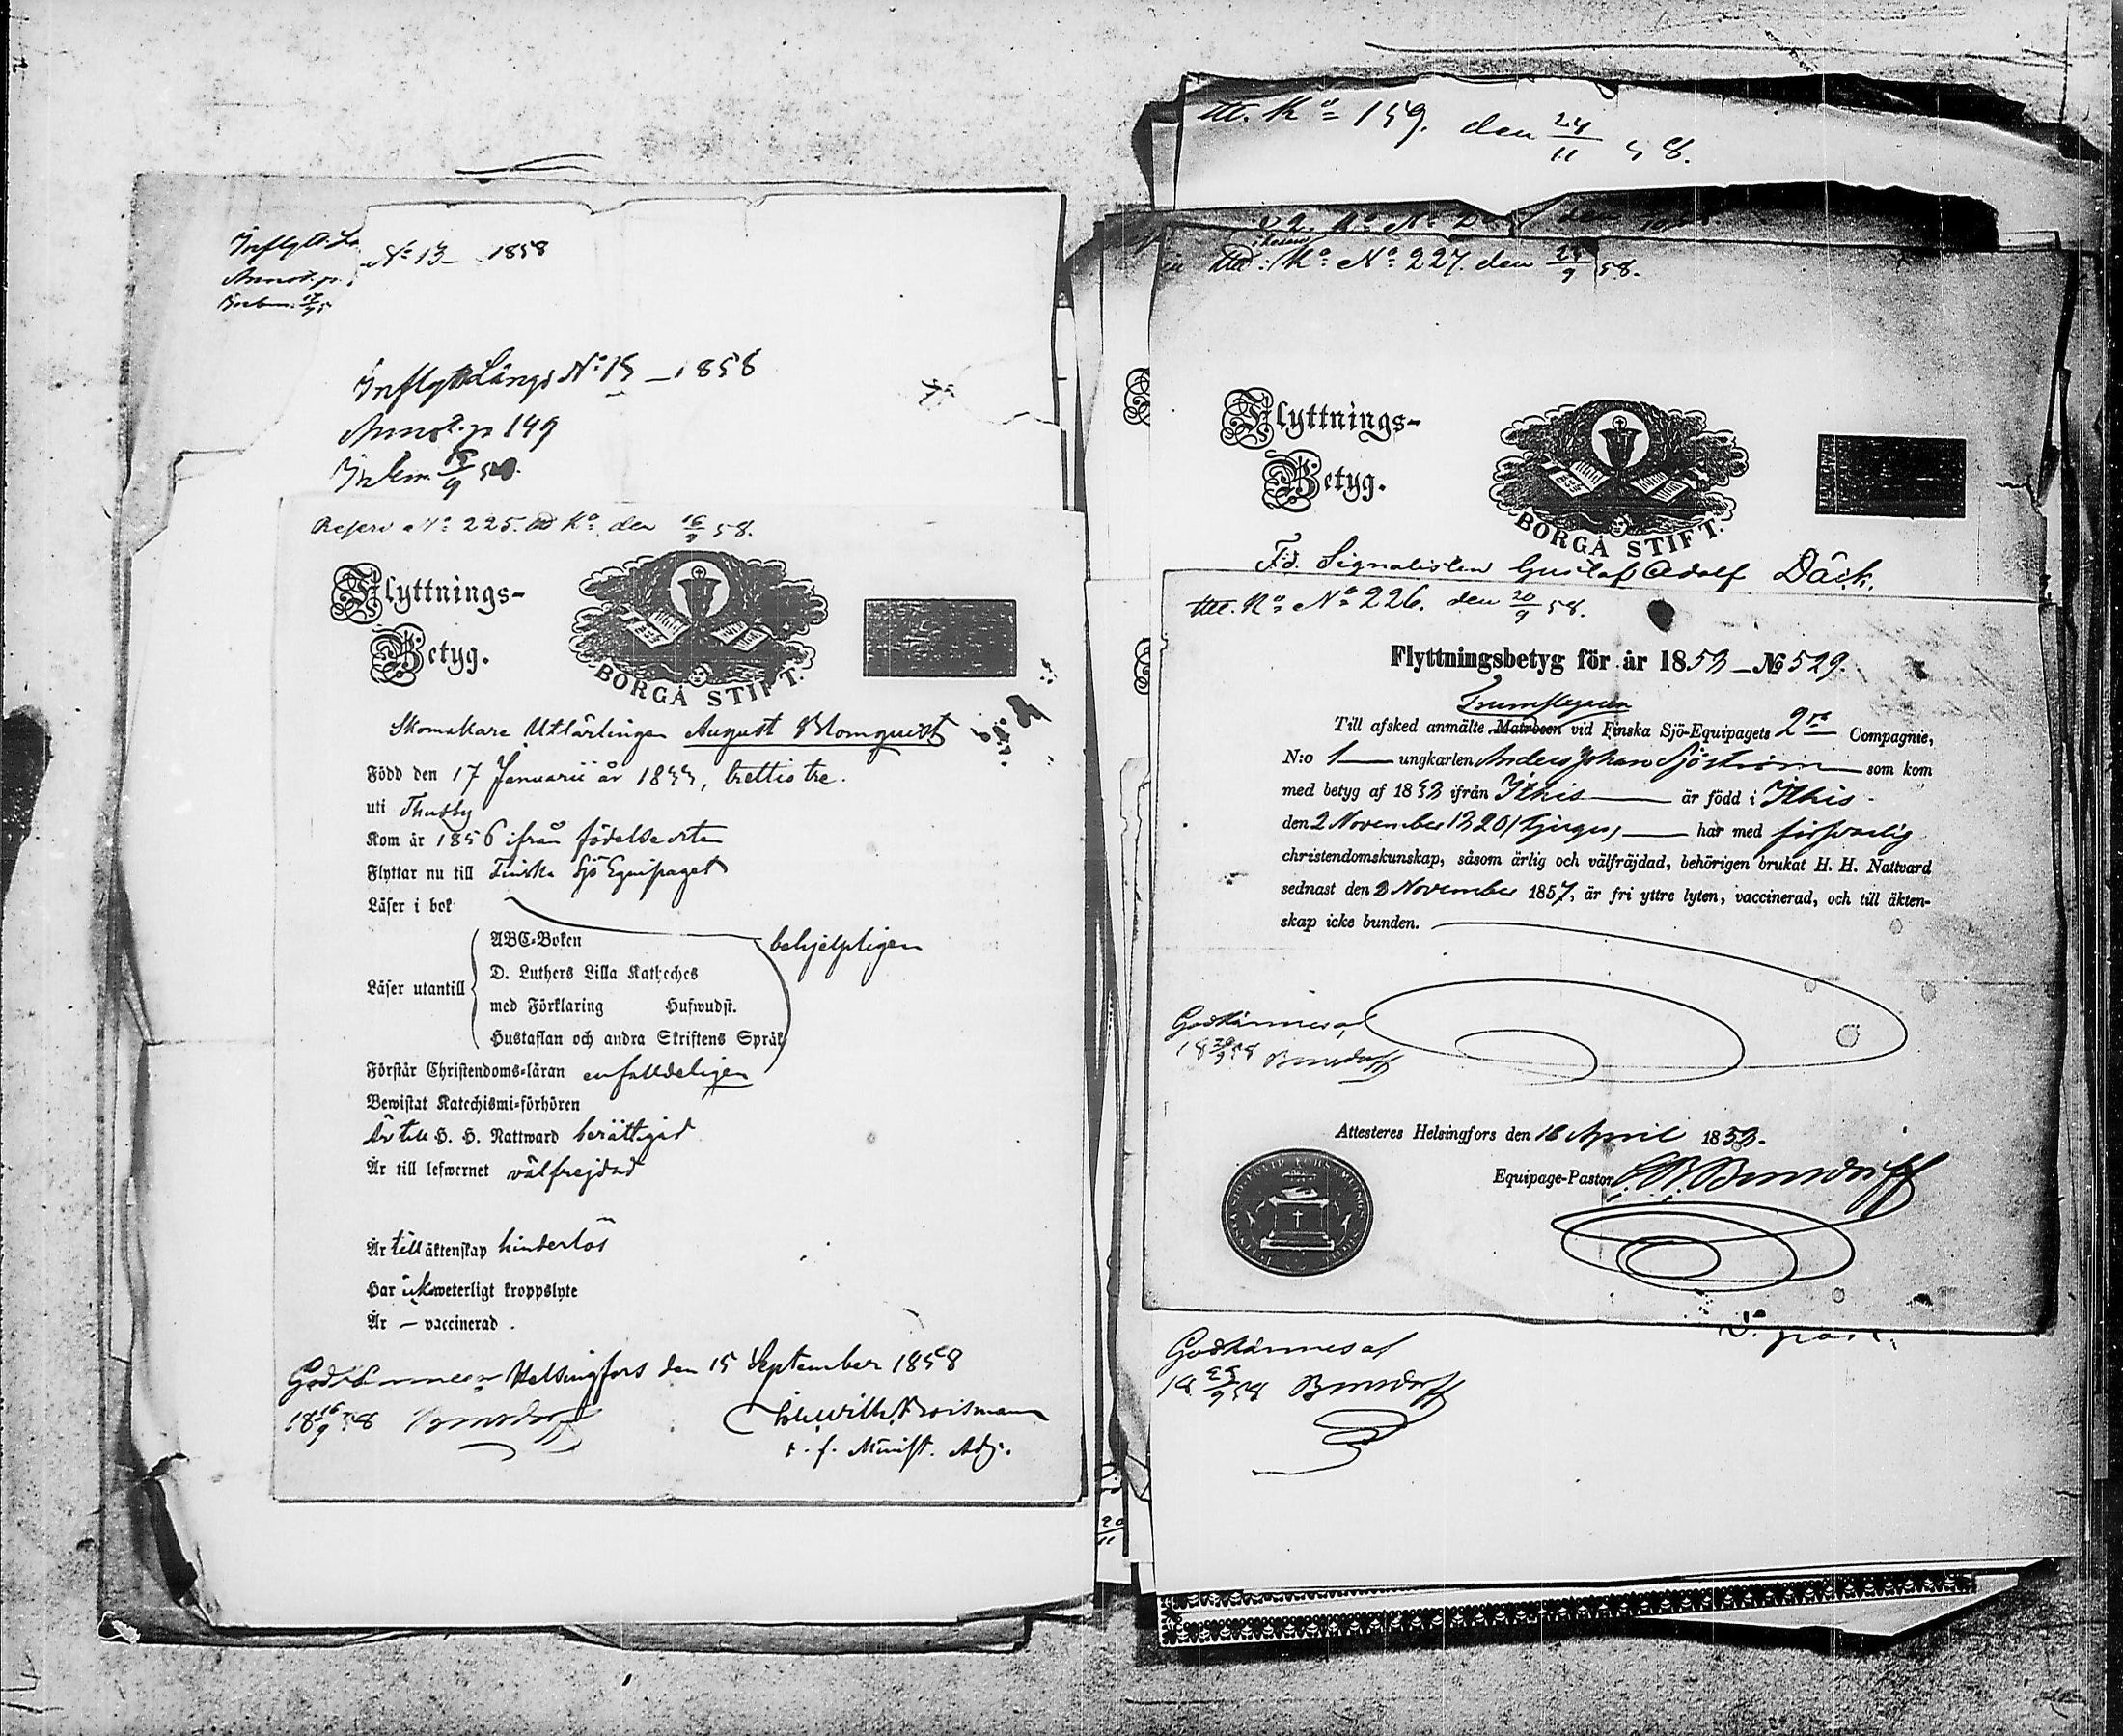 Inflytt. Lä
Annot. p.
Inkom.
No 13 1858
Inflytt Längd No 13 – 1858
Annot. p 149
Inkom. 15/9 58.
Reserv No 225. Ko den 16/9 58.
Flyttnings-
Betyg.
BORGÅ STIFT.
Skomakare Utlärlingen August Blomquist
Född den 17 Januarii år 1833, trettiotre.
uti Thusby
Kom år 1856 ifrån födelseorten
Flyttar nu till Finska Sjö Equipaget
Läser i bok
ABC-Boken behjelpligen
D. Luthers Lilla Katheches
Läser utantill
med Förklaring Hufwudst.
Hustaflan och andra Skriftens Språk
Förstår Christendoms-läran enfalldeligen
Bewistat Katechismi-förhören
Är till H. H. Nattward berättigad
Är till lefwernet välfrejdad
Är till äktenskap hinderlös
Har ick weterligt kroppslyte
Är — vaccinerad.
Godkännes Helsingfors den 15 September 1858
18 16/9 58 Bonsdorff
v. f. Minist. Adj.
Ko 159. den 24/11 58.
Ko No 227. den 58.
Flyttnings-
Betyg.
BORGÅ STIFT.
F.d. Signalisten Gustaf Adolf Däck.
Ko No 226. den 20/9 58.
Flyttningsbetyg för år 1858 — No 529.
Till afsked anmälte Matrosen vid Finska Sjö-Equipagets 2ra Compagnie,
N:o 1 — ungkarlen Anders Johan Sjöström — som kom
med betyg af 1853 ifrån Ithis — är född i Ithis
den 2 November 1820 (tjugu) — har med försvarlig
christendomskunskap, såsom ärlig och välfräjdad, behörigen brukat H. H. Nattvard
sednast den 2 November 1857, är fri yttre lyten, vaccinerad, och till äkten-
skap icke bunden.
Godkännes af
18 20/9 58 Bonsdorff
Attesteres Helsingfors den 16 April 1858.
Equipage-Pastor Bonsdorff
Godkännes af
18 23/9 58 Bonsdorff
20/11